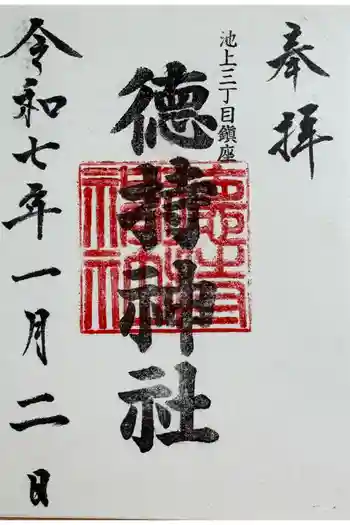 奉拝
池上三丁目鎮座
徳持神社
德持神社
令和七年一月二日